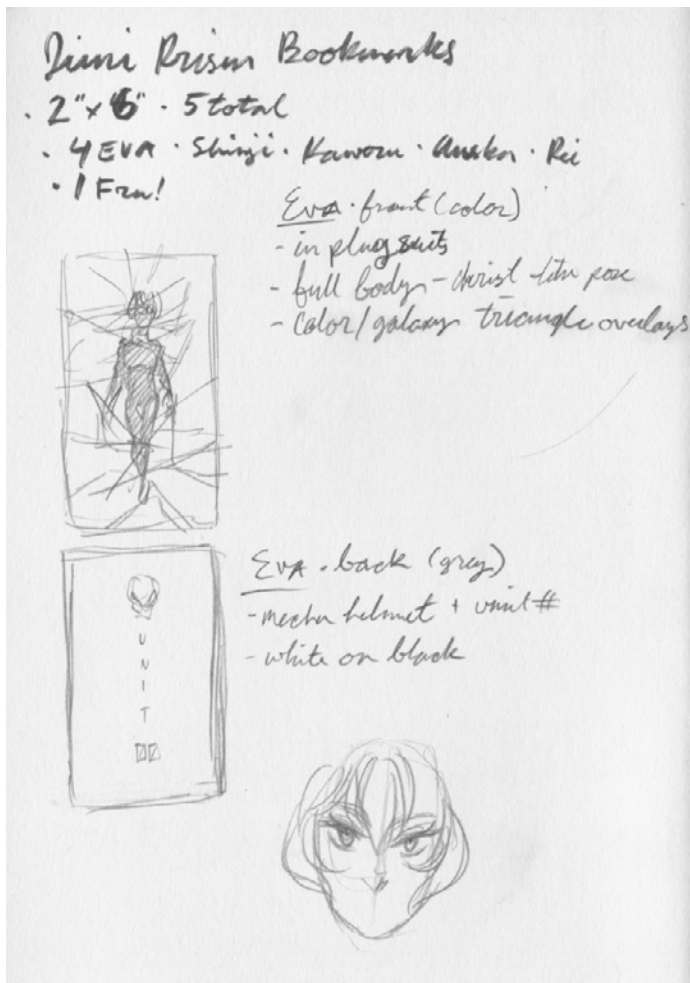 Dimi Prism Bookmarks
· 2"x6" · 5 total
· 4 EVA · Shinji · Kaworu · Auska · Rei
· 1 Free!
Eva · front (color)
- in plug suits
- full body - christ like pose
- color/galaxy triangle overlays
EVA · back (gray)
- mecha helmet + unit #
- white on black
U
N
I
T
00